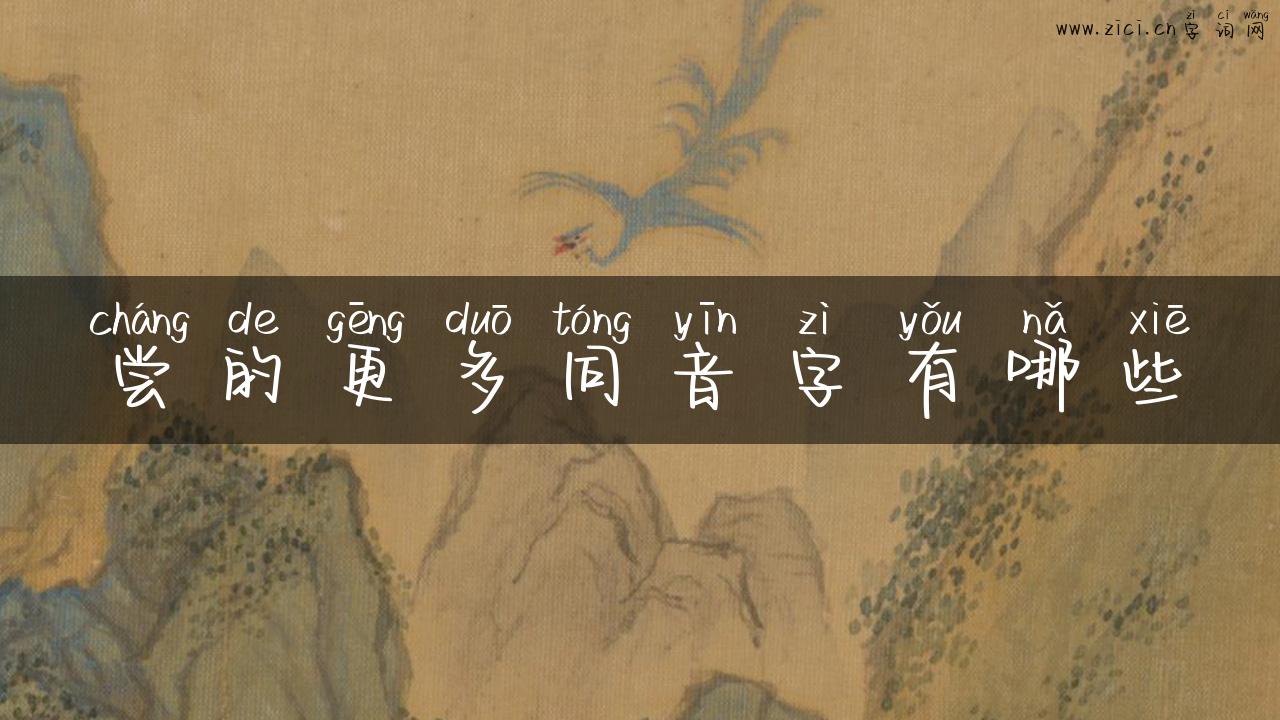 zì cí wǎng
www.zici.cn字词网
cháng de gēng duō tóng yīn zì yǒu nǎ xiē
尝的更多同音字有哪些